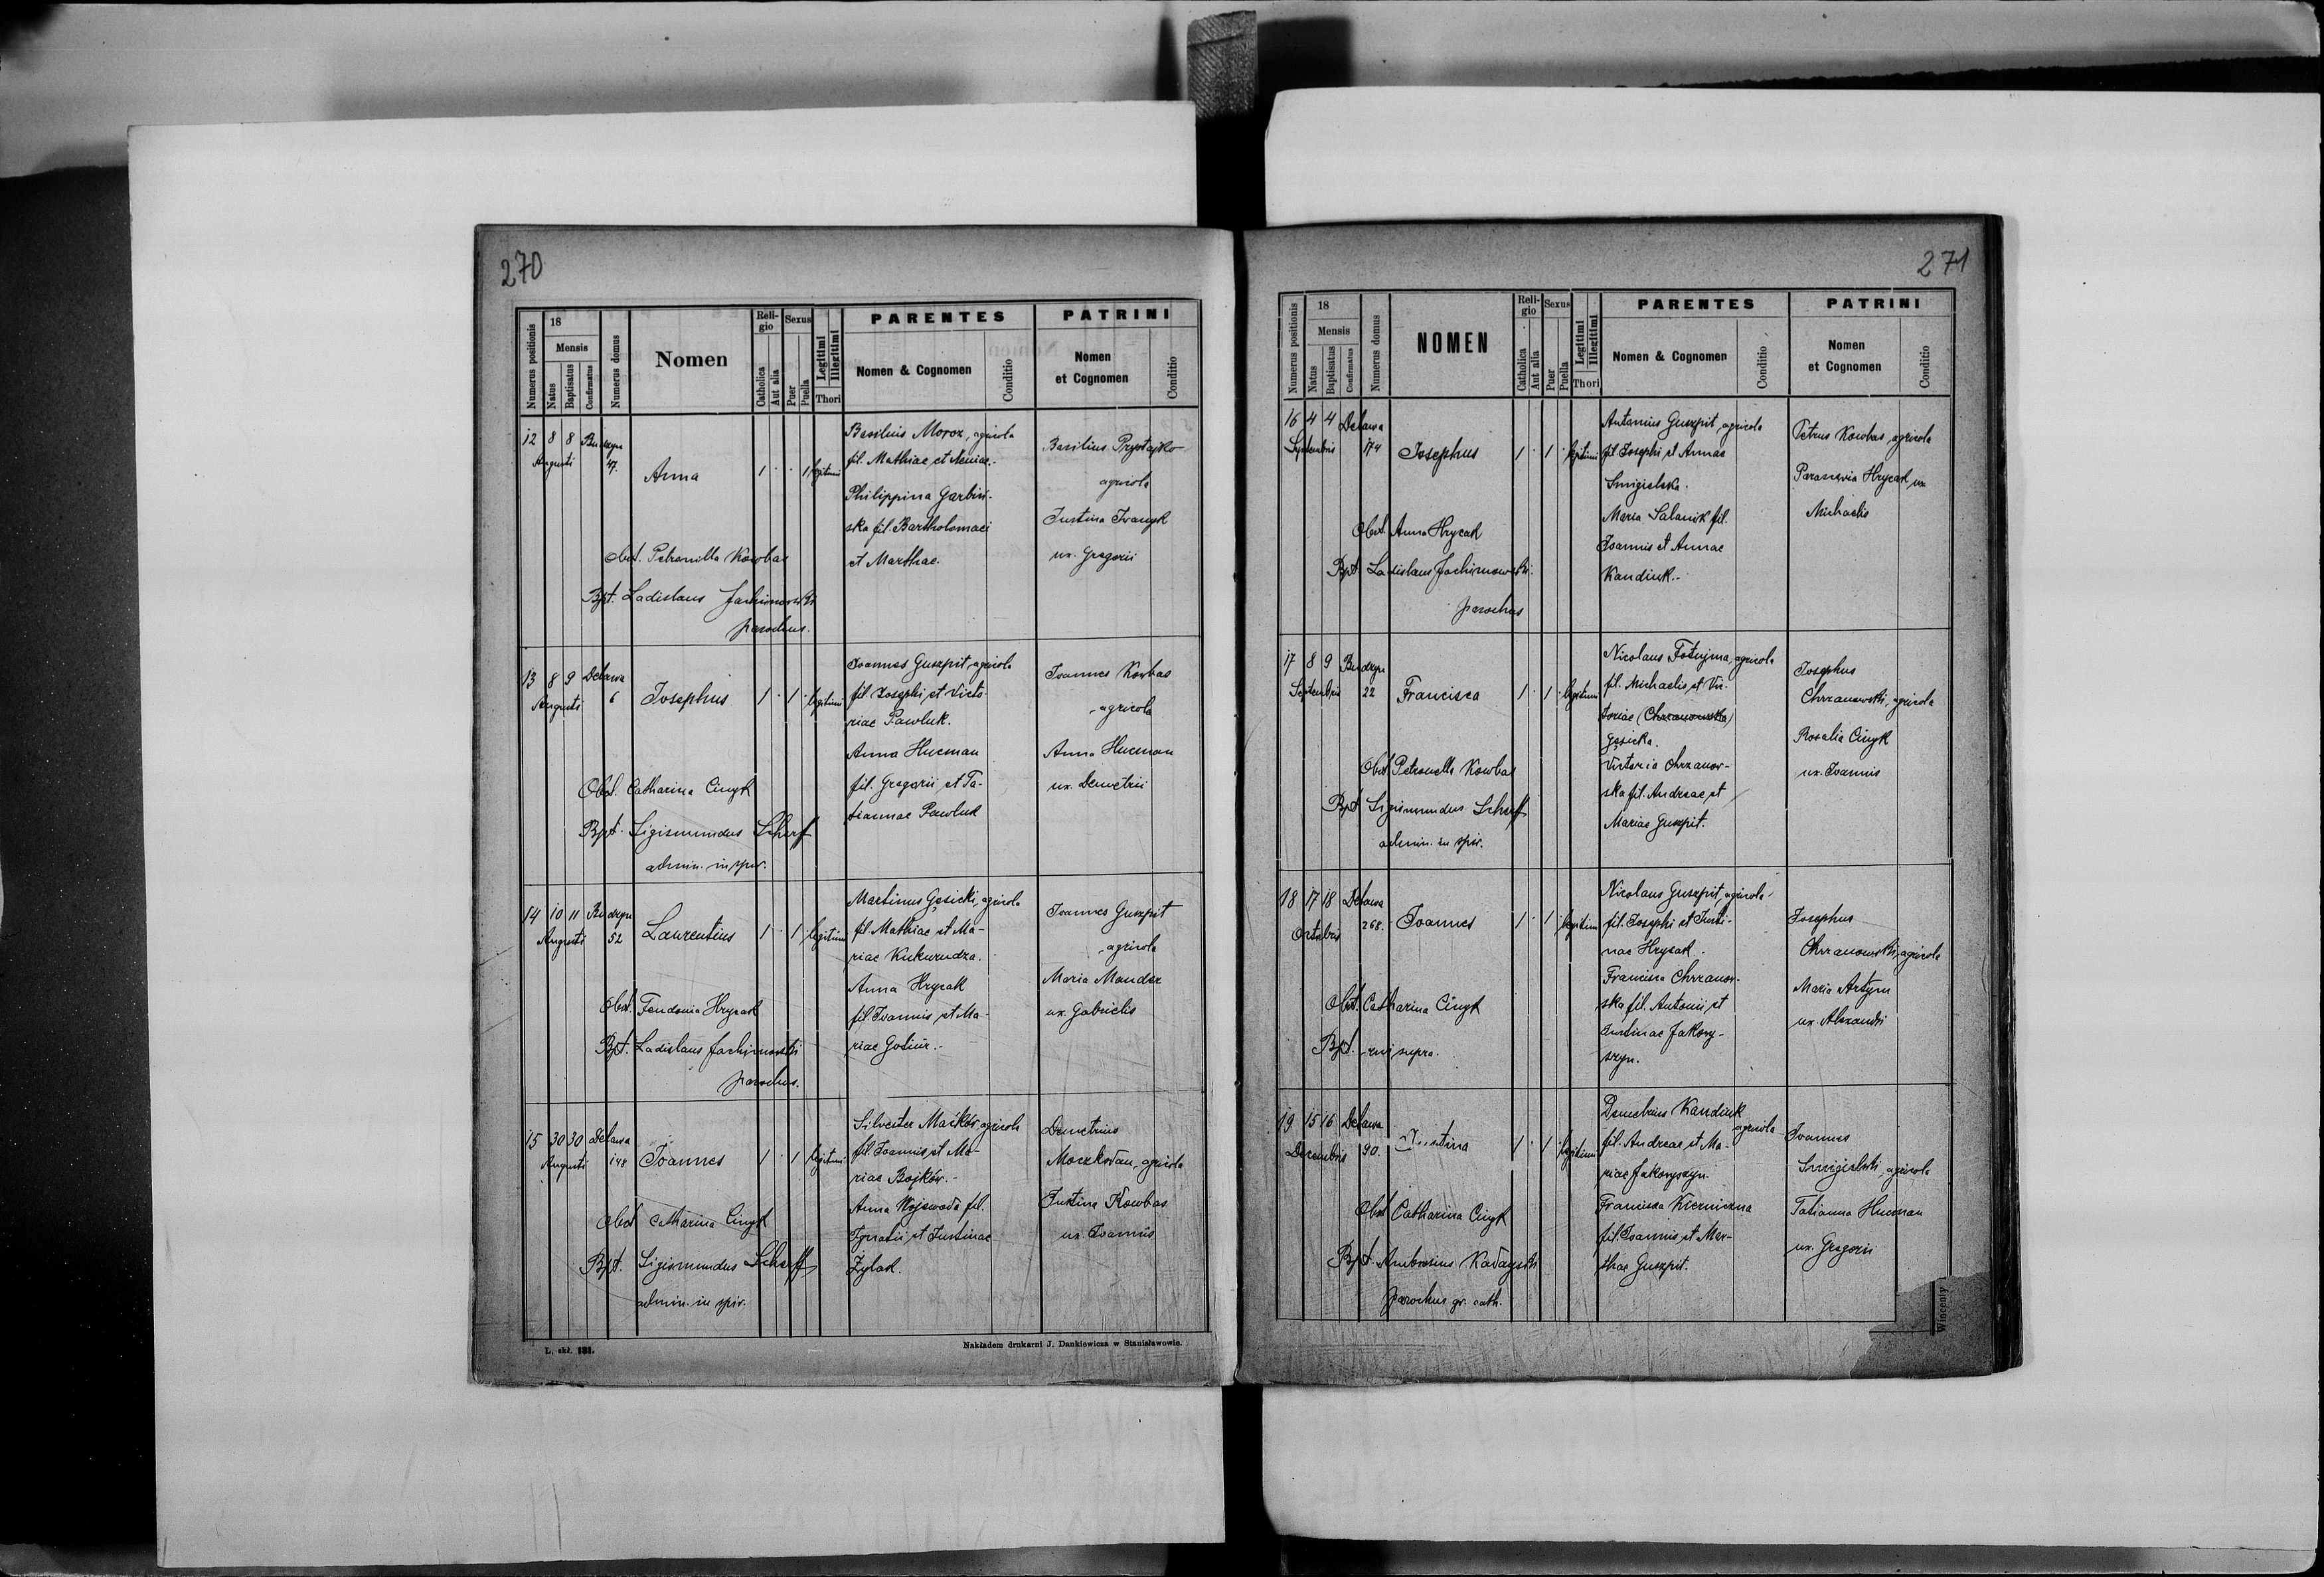 270
Numerus positionis
18
Mensis
Natus
Baptisatus
Confirmatus
Numerus domus
Nomen
Religio
Catholica
Aut alia
Sexus
Puer
Puella
Legitimi
Illegitimi
Thori
PARENTES
Nomen & Cognomen
Conditio
PATRINI
Nomen
et Cognomen
Conditio
12 8 8 Budzyn
Augusti 47.
Anna
1 · · 1 legitimi
Obst. Petronilla Kowbas
Bpt. Ladislaus Jachimowski
parochus.
Basilius Moroz, agricola
fil. Mathiae et Xeniae.
Philippina Garbiń-
ska fil. Bartholomaei
et Marthae.
Basilius Przystajko
agricola
Justina Iwanyk
ux. Gregorii
13 8 9 Delawa
Augusti 6
Josephus
1 · 1 · legitimi
Obst. Catharina Cinyk
Bpt. Sigismundus Scharff
admin. in spir.
Joannes Guszpit, agricola
fil. Josephi et Victo-
riae Pawluk.
Anna Hucman
fil. Gregorii et Ta-
tiannae Pawluk
Joannes Kowbas
agricola
Anna Hucman
ux. Demetrii
14 10 11 Budzyn
Augusti 52
Laurentius
1 · 1 legitimi
Obst. Feudonia Hrycak
Bpt. Ladislaus Jachimowski
parochus.
Martinus Gęsicki, agricola
fil. Mathiae et Ma-
riae Kukurudza.
Anna Hrycak
fil. Joannis et Ma-
riae
Joannes Guszpit
agricola
Maria Mander
ux. Gabrielis
15 30 30 Delawa
Augusti 148
Joannes
1 · 1 legitimi
Obst. Catharina Cinyk
Bpt. Sigismundus Scharff
admin. in spir.
Silvester Maśków, agricola
fil. Joannis et Ma-
riae Bojków.
Anna Wojewoda fil.
Ignatii et Justinae
Żylak.
Demetrius
Moczkodan, agricola
Justina Kowbas
ux. Joannis
L. skł. 131.
Nakładem drukarni J. Dankiewicza w Stanisławowie.
271
Numerus positionis
18
Mensis
Natus
Baptisatus
Confirmatus
Numerus domus
NOMEN
Religio
Catholica
Aut alia
Sexus
Puer
Puella
Legitimi
Illegitimi
Thori
PARENTES
Nomen & Cognomen
Conditio
PATRINI
Nomen
et Cognomen
Conditio
16 4 4 Delawa
Septembris 174
Josephus
1 · 1 · legitimi
Obst. Anna Hrycak
Bpt. Ladislaus Jachimowski.
parochus
Antonius Guszpit, agricola
fil. Josephi et Annae
Smigielska.
Maria Salanik fil.
Joannis et Annae
Kandiuk.
Petrus Kowbas, agricola
Parascevia Hrycak ux
Michaelis
17 8 9 Budzyn
Septembris 22
Francisca
1 · 1 · legitimi
Obst. Petronella Kowbas
Bpt. Sigismundus Scharff
admin. in spir.
Nicolaus agricola
fil. Michaelis et Vic-
toriae (Chrzanowska)
Gęsicka.
Victoria Chrzanow-
ska fil. Andreae et
Mariae Guszpit.
Josephus
Chrzanowski, agricola
Rosalia Cinyk
ux. Joannis
18 17 18 Delawa
Octobris 268.
Joannes
1 · 1 · legitimi
Obst. Catharina Cinyk
Bpt. supra.
Nicolaus Guszpit, agricola
fil. Josephi et Justi-
nae Hrycak.
Francisca Chrzanow-
ska fil. Antonii et
Justinae Jakowy-
szyn.
Josephus
Chrzanowski, agricola
Maria Artym
ux. Alexandri
19 15 16 Delawa
Decembris 90.
Justina
1 · 1 · legitimi
Obst. Catharina Cinyk
Bpt. Ambrosius
parochus gr. cath.
Demetrius Kandiuk
agricola
fil. Andreae et Ma-
riae Jakowyszyn.
Francisca Kierniczna
fil. Joannis et Mar-
thae Guszpit.
Joannes
Smigielski, agricola
Tatianna Hucman
ux. Gregorii
Wincenty